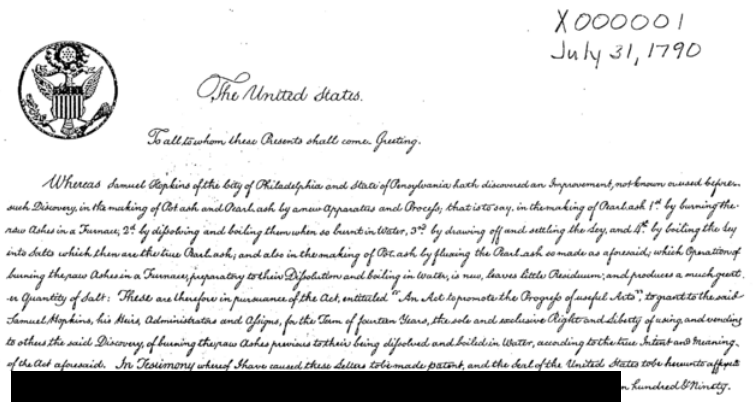 X000001
July 31, 1790
The United States.
To all to whom these Presents shall come. Greeting.
Whereas Samuel Hopkins of the City of Philadelphia and State of Pensylvania hath discovered an Improvement, not known or used before
such Discovery, in the making of Pot ash and Pearl ash by a new Apparatus and Process; that is to say, in the making of Pearl ash 1st. by burning the
raw Ashes in a Furnace, 2d. by dissolving and boiling them when so burnt in Water, 3rd. by drawing off and settling the Ley, and 4th. by boiling the Ley
into Salts which then are the true Pearl ash; and also in the making of Pot ash by fluxing the Pearl ash so made as aforesaid; which Operation of
burning the raw Ashes in a Furnace, preparatory to their Dissolution and boiling in Water, is new, leaves little Residuum; and produces a much great-
er Quantity of Salt: These are therefore in pursuance of the Act, entituled "An Act to promote the Progress of useful Arts", to grant to the said
Samuel Hopkins, his Heirs, Administrators and Assigns, for the Term of fourteen Years, the sole and exclusive Right and Liberty of using, and vending
to others the said Discovery, of burning the raw Ashes previous to their being dissolved and boiled in Water, according to the true Intent and Meaning
of the Act aforesaid. In Testimony whereof I have caused these Letters to be made patent, and the Seal of the United States to be hereunto affixed
hundred & Ninety.